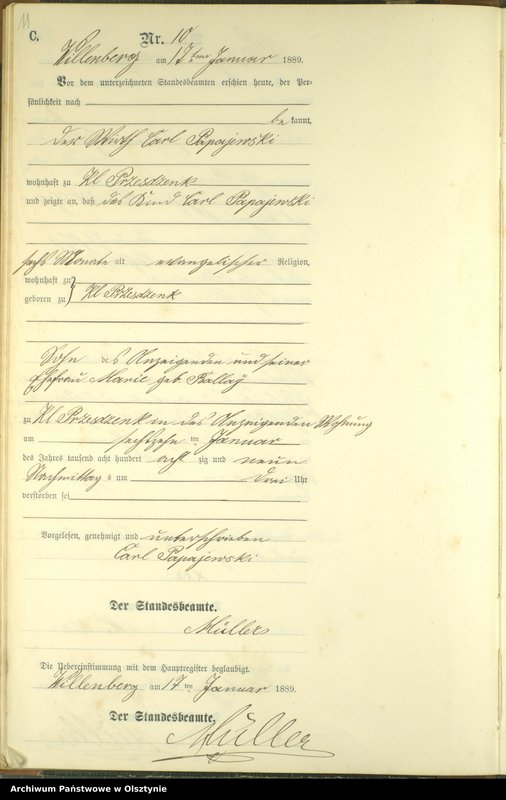 11
C.
Nr. 10
Willenberg am 17ten Januar 1889.
Vor dem unterzeichneten Standesbeamten erschien heute, der Per-
sönlichkeit nach
be kannt,
der Wirth Carl Papajewski
wohnhaft zu Kl Przesdzenk
und zeigte an, daß das Kind Carl Papajewski
sechs Monate alt evangelischer Religion,
wohnhaft zu
geboren zu Kl Przesdzenk
Sohn des Anzeigenden und seiner
Ehefrau Marie geb. Ballay
zu Kl Przesdzenk in des Anzeigenden Wohnung
am sechszehn ten Januar
des Jahres tausend acht hundert acht zig und neun
Nachmittag s um drei Uhr
verstorben sei
Vorgelesen, genehmigt und unterschrieben
Carl Papajewski
Der Standesbeamte.
Müller
Die Uebereinstimmung mit dem Hauptregister beglaubigt.
Willenberg am 17 ten Januar 1889.
Der Standesbeamte.
Müller
Archiwum Państwowe w Olsztynie